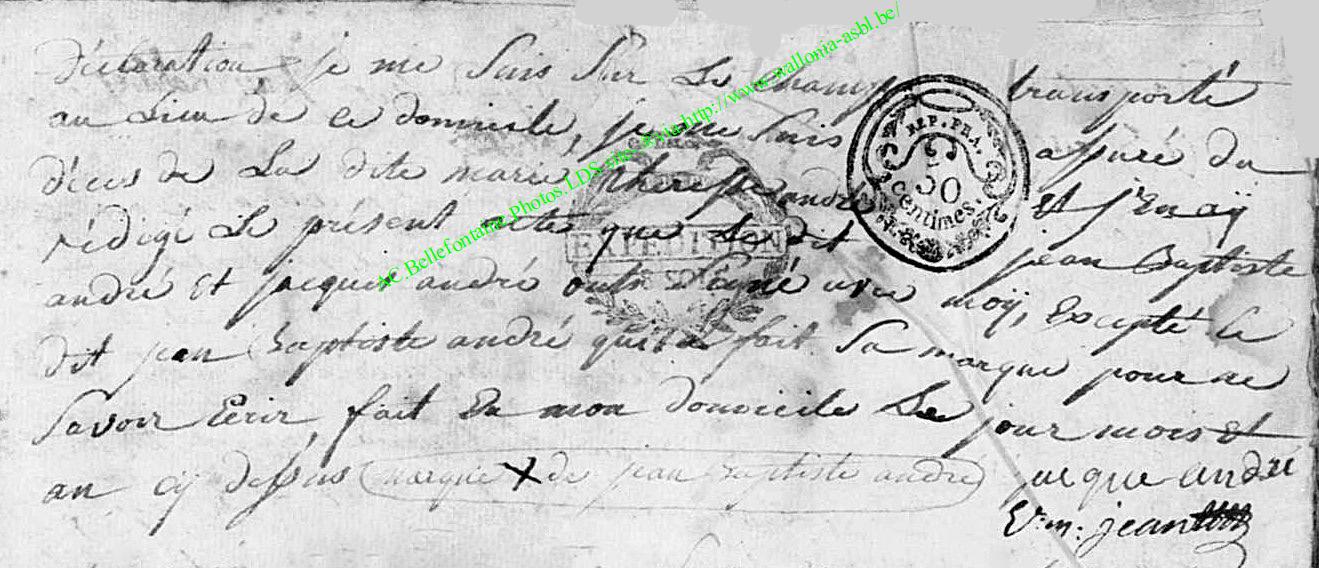 déclaration, je me suis sur le champ transporté
au lieu de ce domicile, je me suis assuré du
déces de la dite marie theresse andré et j'en aÿ
rédigé le présent acte que le dit jean Baptiste
andré et jacque andré ont signé avec moÿ, Excepté le
dit jean Baptiste andré qui a fait sa marque pour ne
savoir Ecrir, fait en mon domicile le jour mois et
an cÿ dessus marque X de jean baptiste andré jacque andré
jean
REP. FRA.
50
centimes.
EXPEDITION
AC Bellefontaine Photos LDS http://www.wallonia-asbl.be/